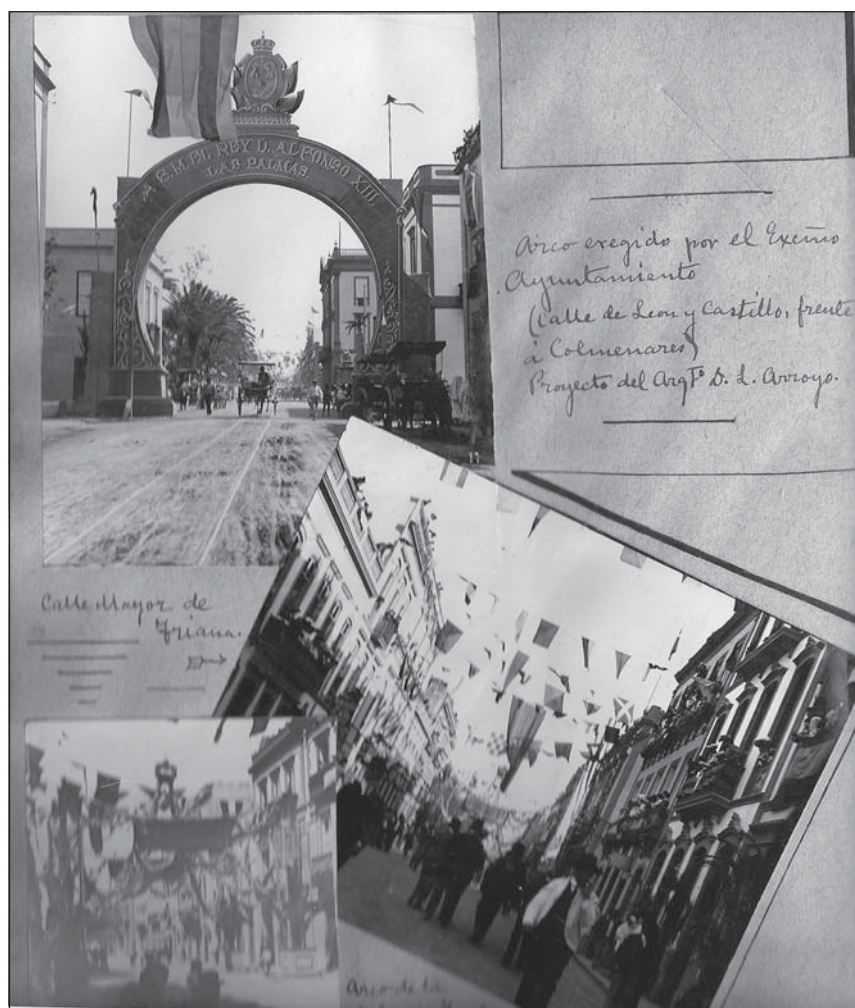 A S.M. EL REY D. ALFONSO XIII.
LAS PALMAS.
Arco eregido por el Excmo
Ayuntamiento
(Calle de Leon y Castillo, frente
á Colmenares)
Proyecto del Arqto D. L. Arroyo.
Calle Mayor de
Triana.
Arco de la